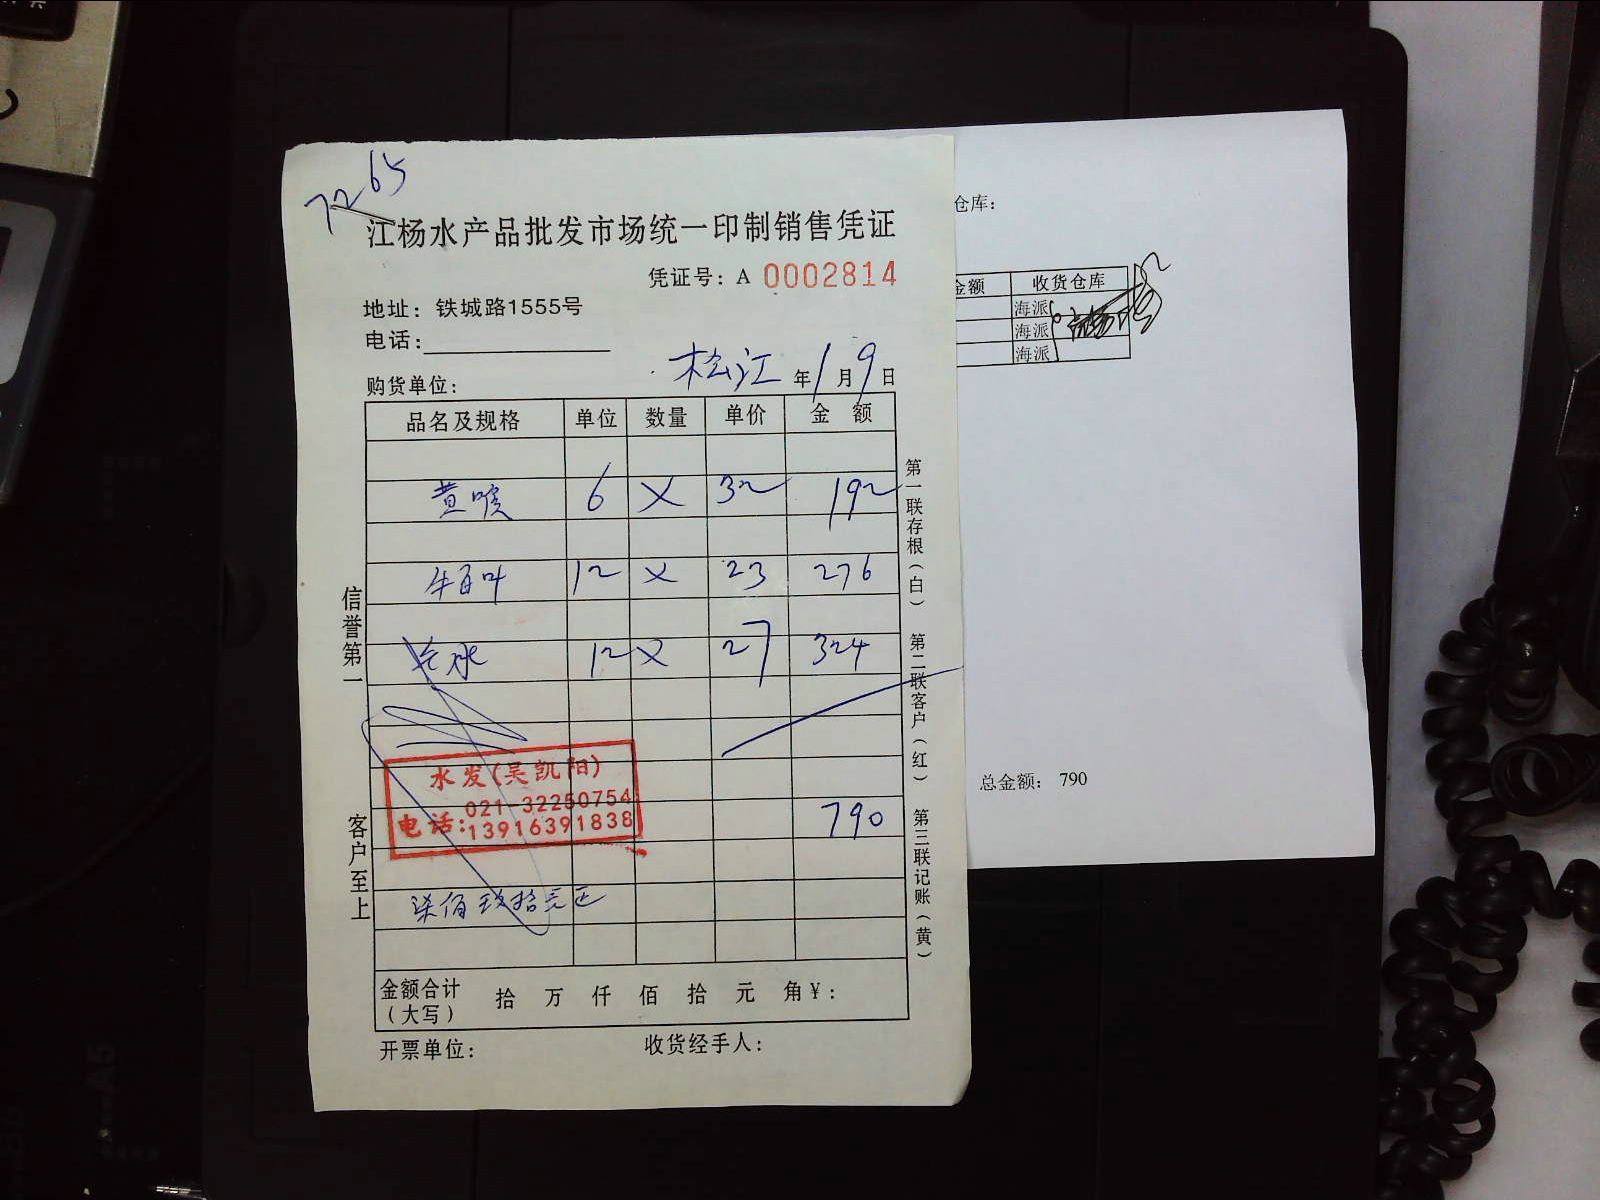 7265
江杨水产品批发市场统一印制销售凭证
凭证号：A 0002814
地址：铁城路1555号
电话：
购货单位： 松江 年 1 月 9 日
品名及规格 单位 数量 单价 金 额
黄喉 6 × 32 192
牛百叶 12 × 23 276
12 × 27 324
水发(吴凯阳)
021-32250754
电话:13916391838
790
柒佰玖拾元正
金额合计
（大写） 拾 万 仟 佰 拾 元 角 ¥：
开票单位： 收货经手人：
信誉第一
客户至上
第一联存根（白）
第二联客户（红）
第三联记账（黄）
仓库：
金额 收货仓库
海派
海派
海派
总金额： 790